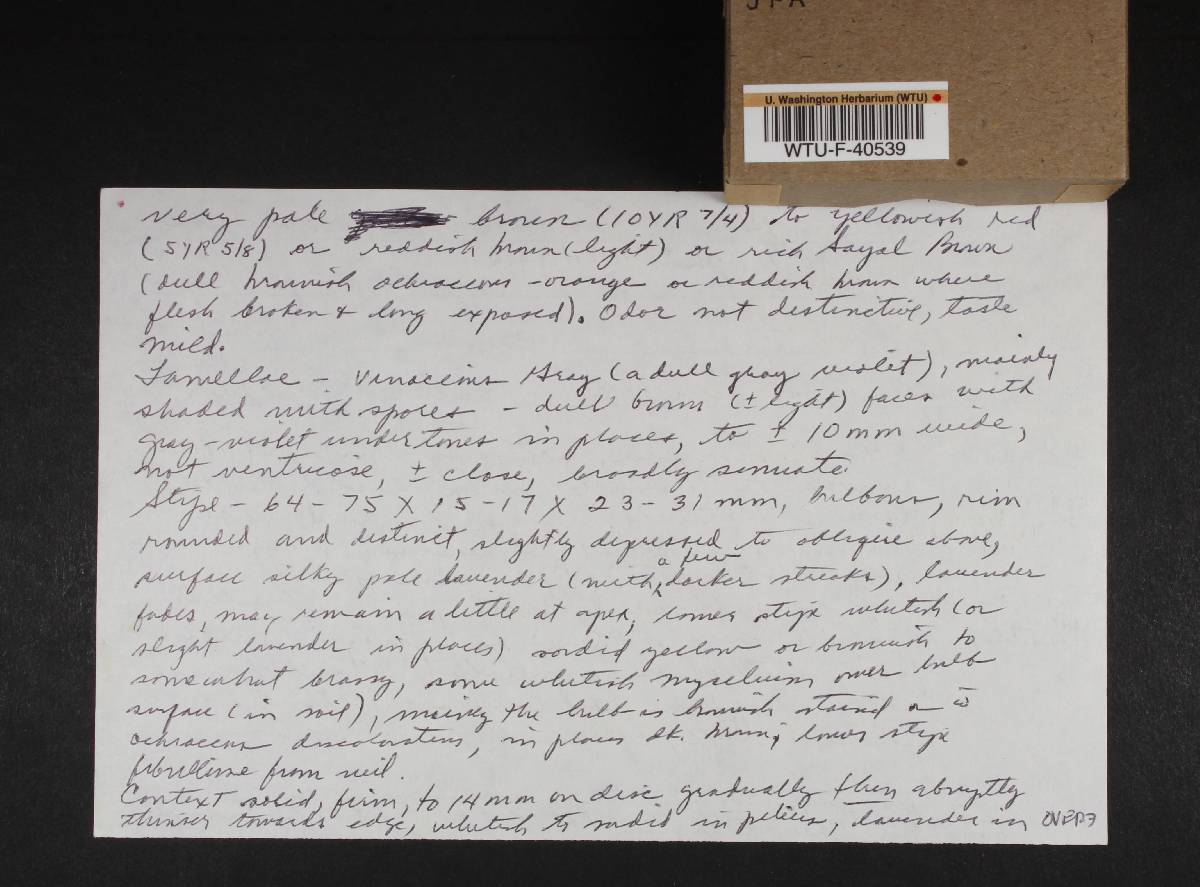 JFA
U. Washington Herbarium (WTU)
WTU-F-40539
very pale brown (10YR 7/4) to yellowish red
(5YR 5/8) or reddish brown (light) or rich Sayal Brown
(dull brownish ochraceous-orange or reddish brown where
flesh broken & long exposed). Odor not distinctive, taste
mild.
Lamellae - Vinaceous Gray (a dull gray violet), mainly
shaded with spores - dull brown (± light) faces with
gray-violet undertones in places, to ± 10 mm wide,
not ventricose, ± close, broadly sinuate.
Stipe - 64-75 X 15-17 X 23-31 mm, bulbous, rim
rounded and distinct, slightly depressed to oblique above,
surface silky pale lavender (with a few darker streaks), lavender
fades, may remain a little at apex, lower stipe whitish (or
slight lavender in places) sordid yellow or brownish to
somewhat brassy, some whitish mycelium over bulb
surface (in soil), mainly the bulb is brownish stained or w̄
ochraceous discolorations, in places dk. brown; lower stipe
fibrillose from veil.
Context solid, firm, to 14 mm on disc gradually then abruptly
thinner towards edge, whitish to sordid in pileus, lavender in OVER→